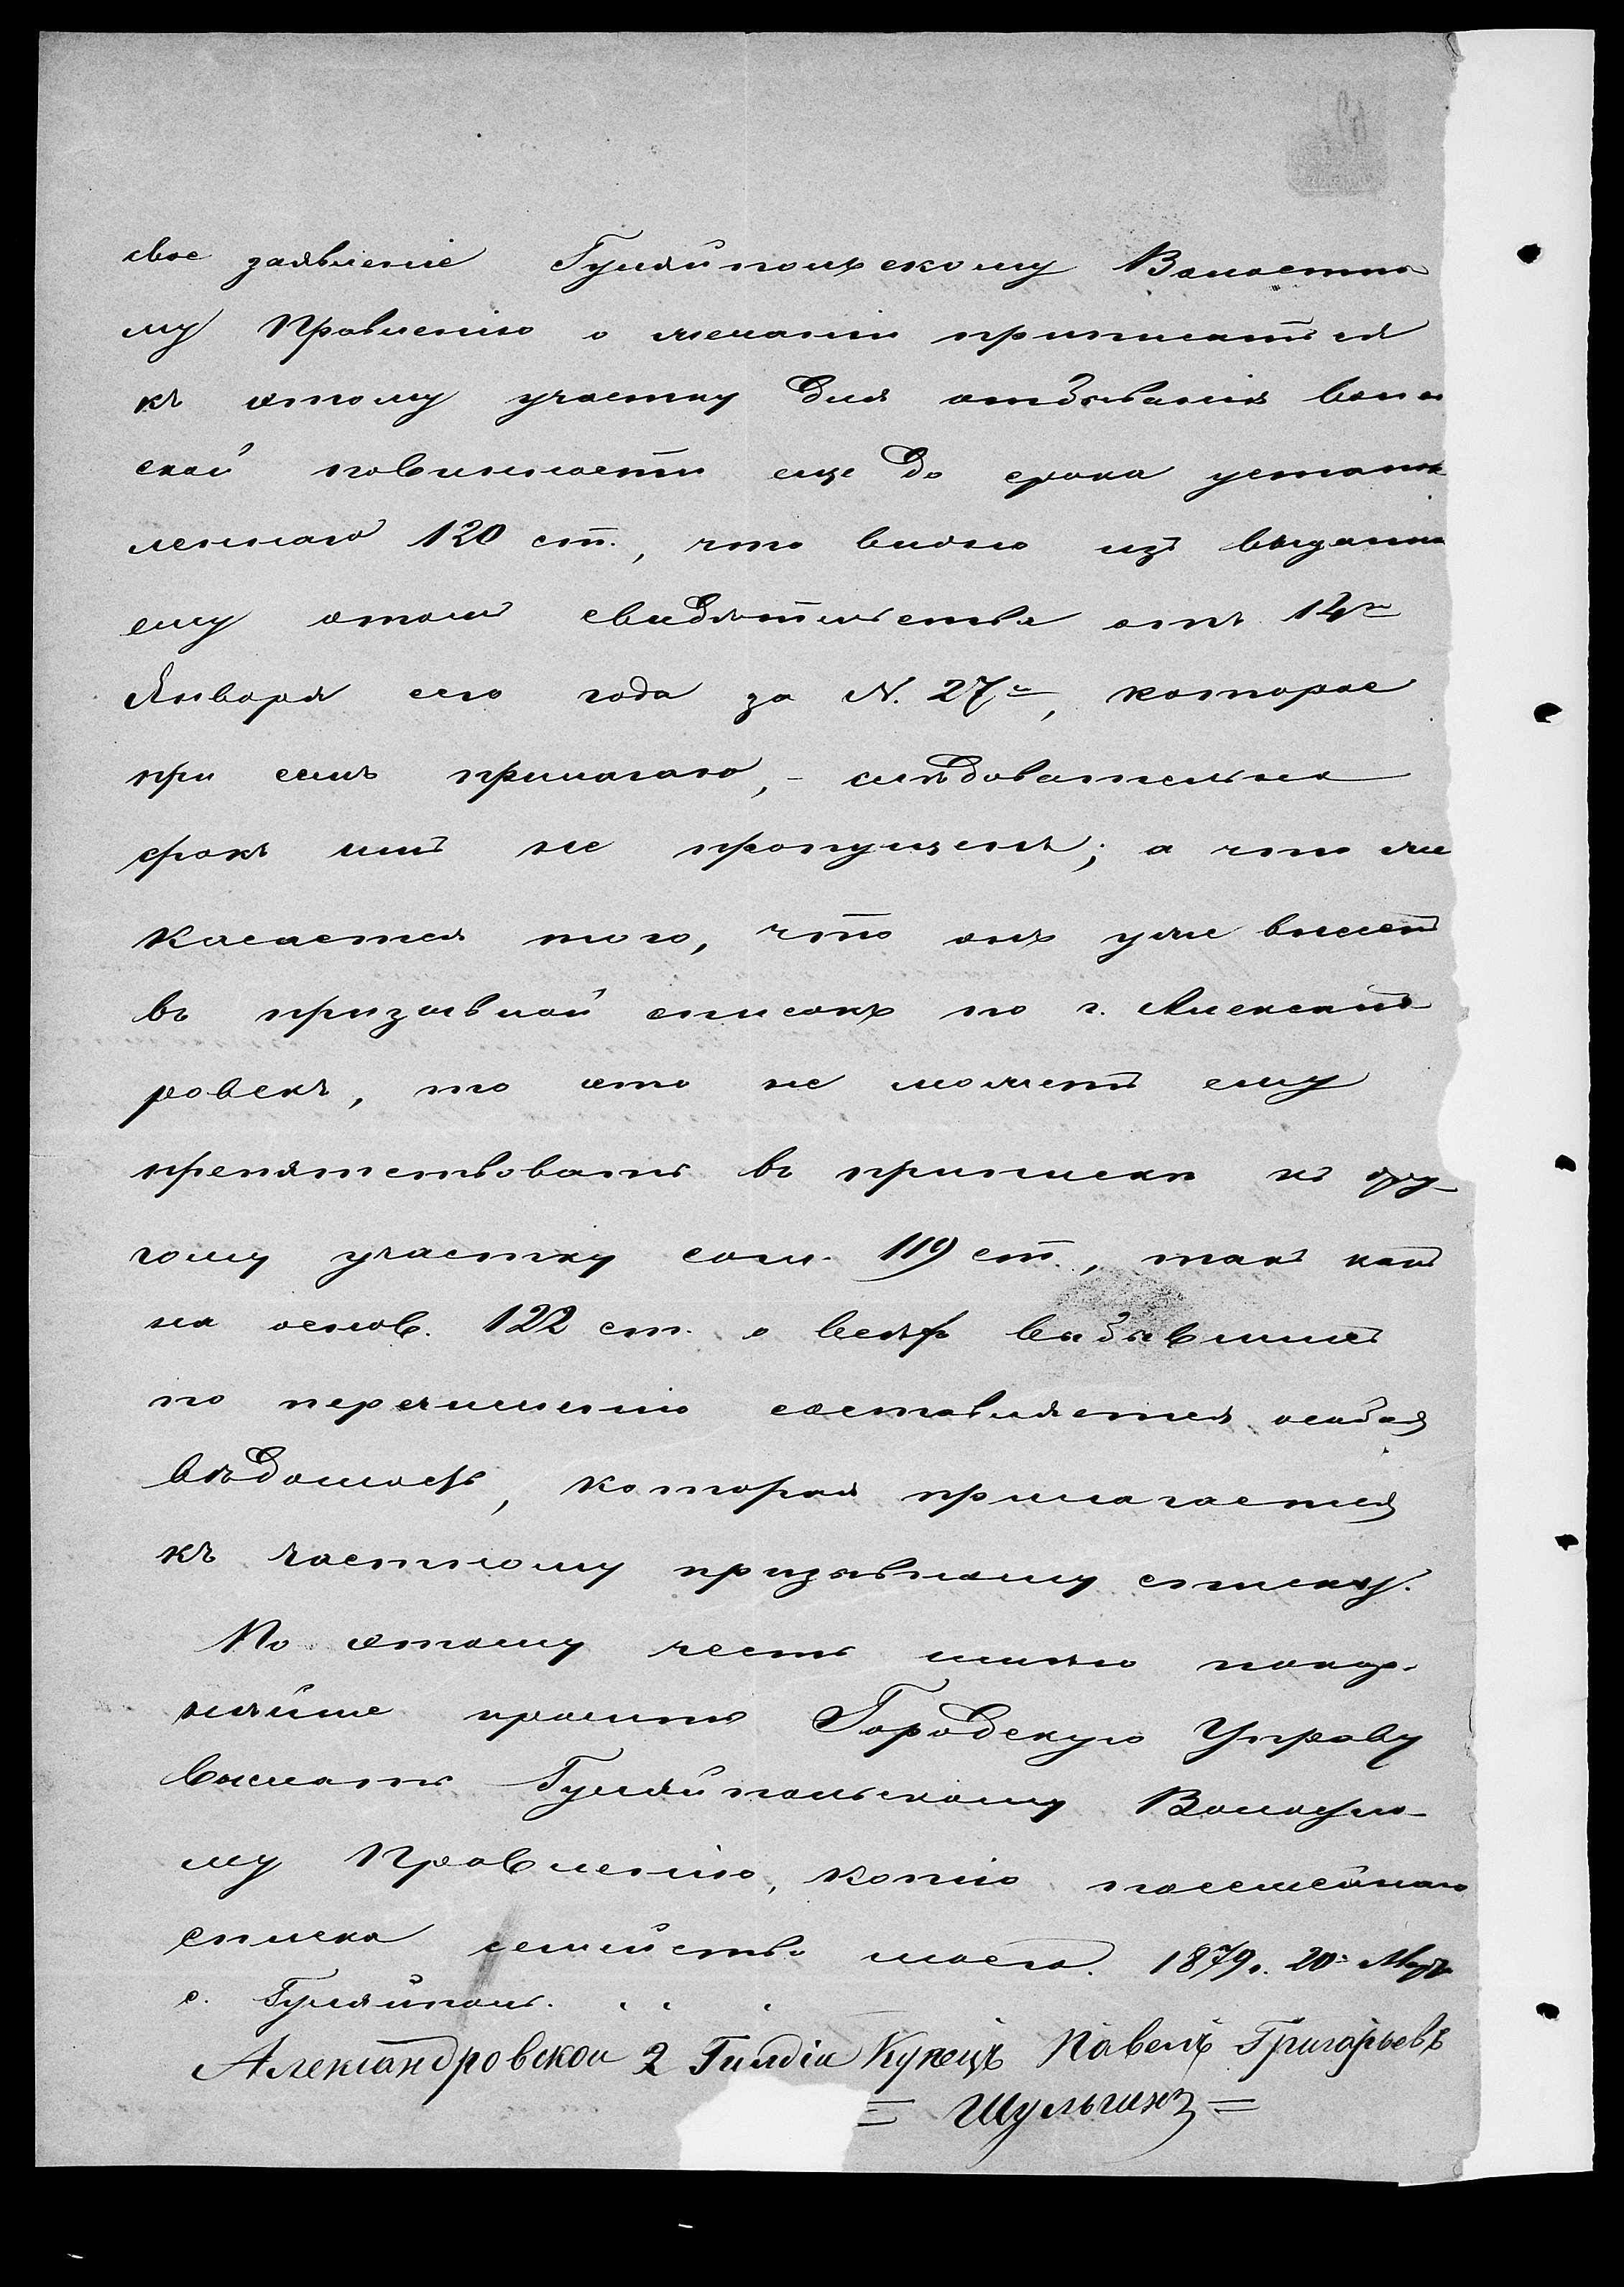 свое заявленіе Гуляйпольскому Волостно
му Правленію о желаніи приписаться
къ этому участку для отбыванія воин
ской повинности еще до срока установ
леннаго 120 ст., что видно изъ выданна
ему этомъ свидѣтельства отъ 14го
Января сего года за N. 27м, которое
при семъ прилагаю, - слѣдовательно
срокъ имъ не пропущенъ; а что же
касается того, что онъ уже внесенъ
въ призывной списокъ по г. Александ
ровску, то это не можетъ ему
препятствовать въ припискѣ къ дру-
гому участку согл. 119 ст., такъ какъ
на основ. 122 ст. о всѣхъ выбывшихъ
по перечисленію составляется особая
вѣдомость, которая прилагается
къ частному призывному списку.
По этому честь имѣю покор-
нѣйше просить Городскую Управу
выслать Гуляйпольскому Волостно-
му Правленію, копію посемейнаго
списка семейства моего. 1879г. 20го Марта
с. Гуляйполь.
Александровской 2 Гилдіи Купецъ Павелъ Григорьевъ
= Шульгинъ =